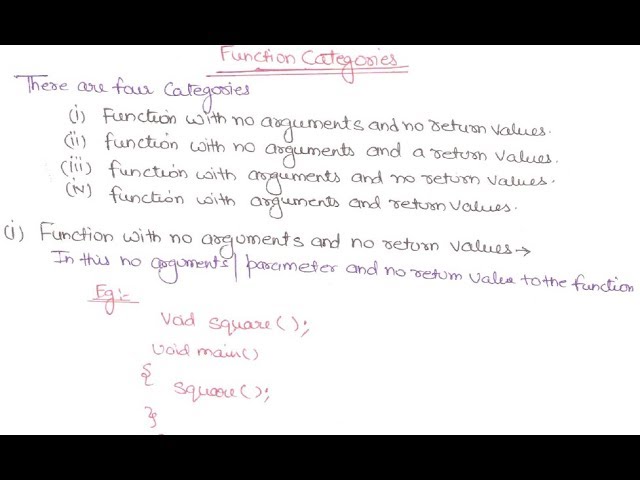 Function Categories
There are four Categories
(i) Function with no arguments and no return values.
(ii) function with no arguments and a return values.
(iii) function with arguments and no return values.
(iv) function with arguments and return values.
(i) Function with no arguments and no return values →
In this no arguments/ parameter and no return value to the function
Eg:-
void square();
void main()
{
square();
}